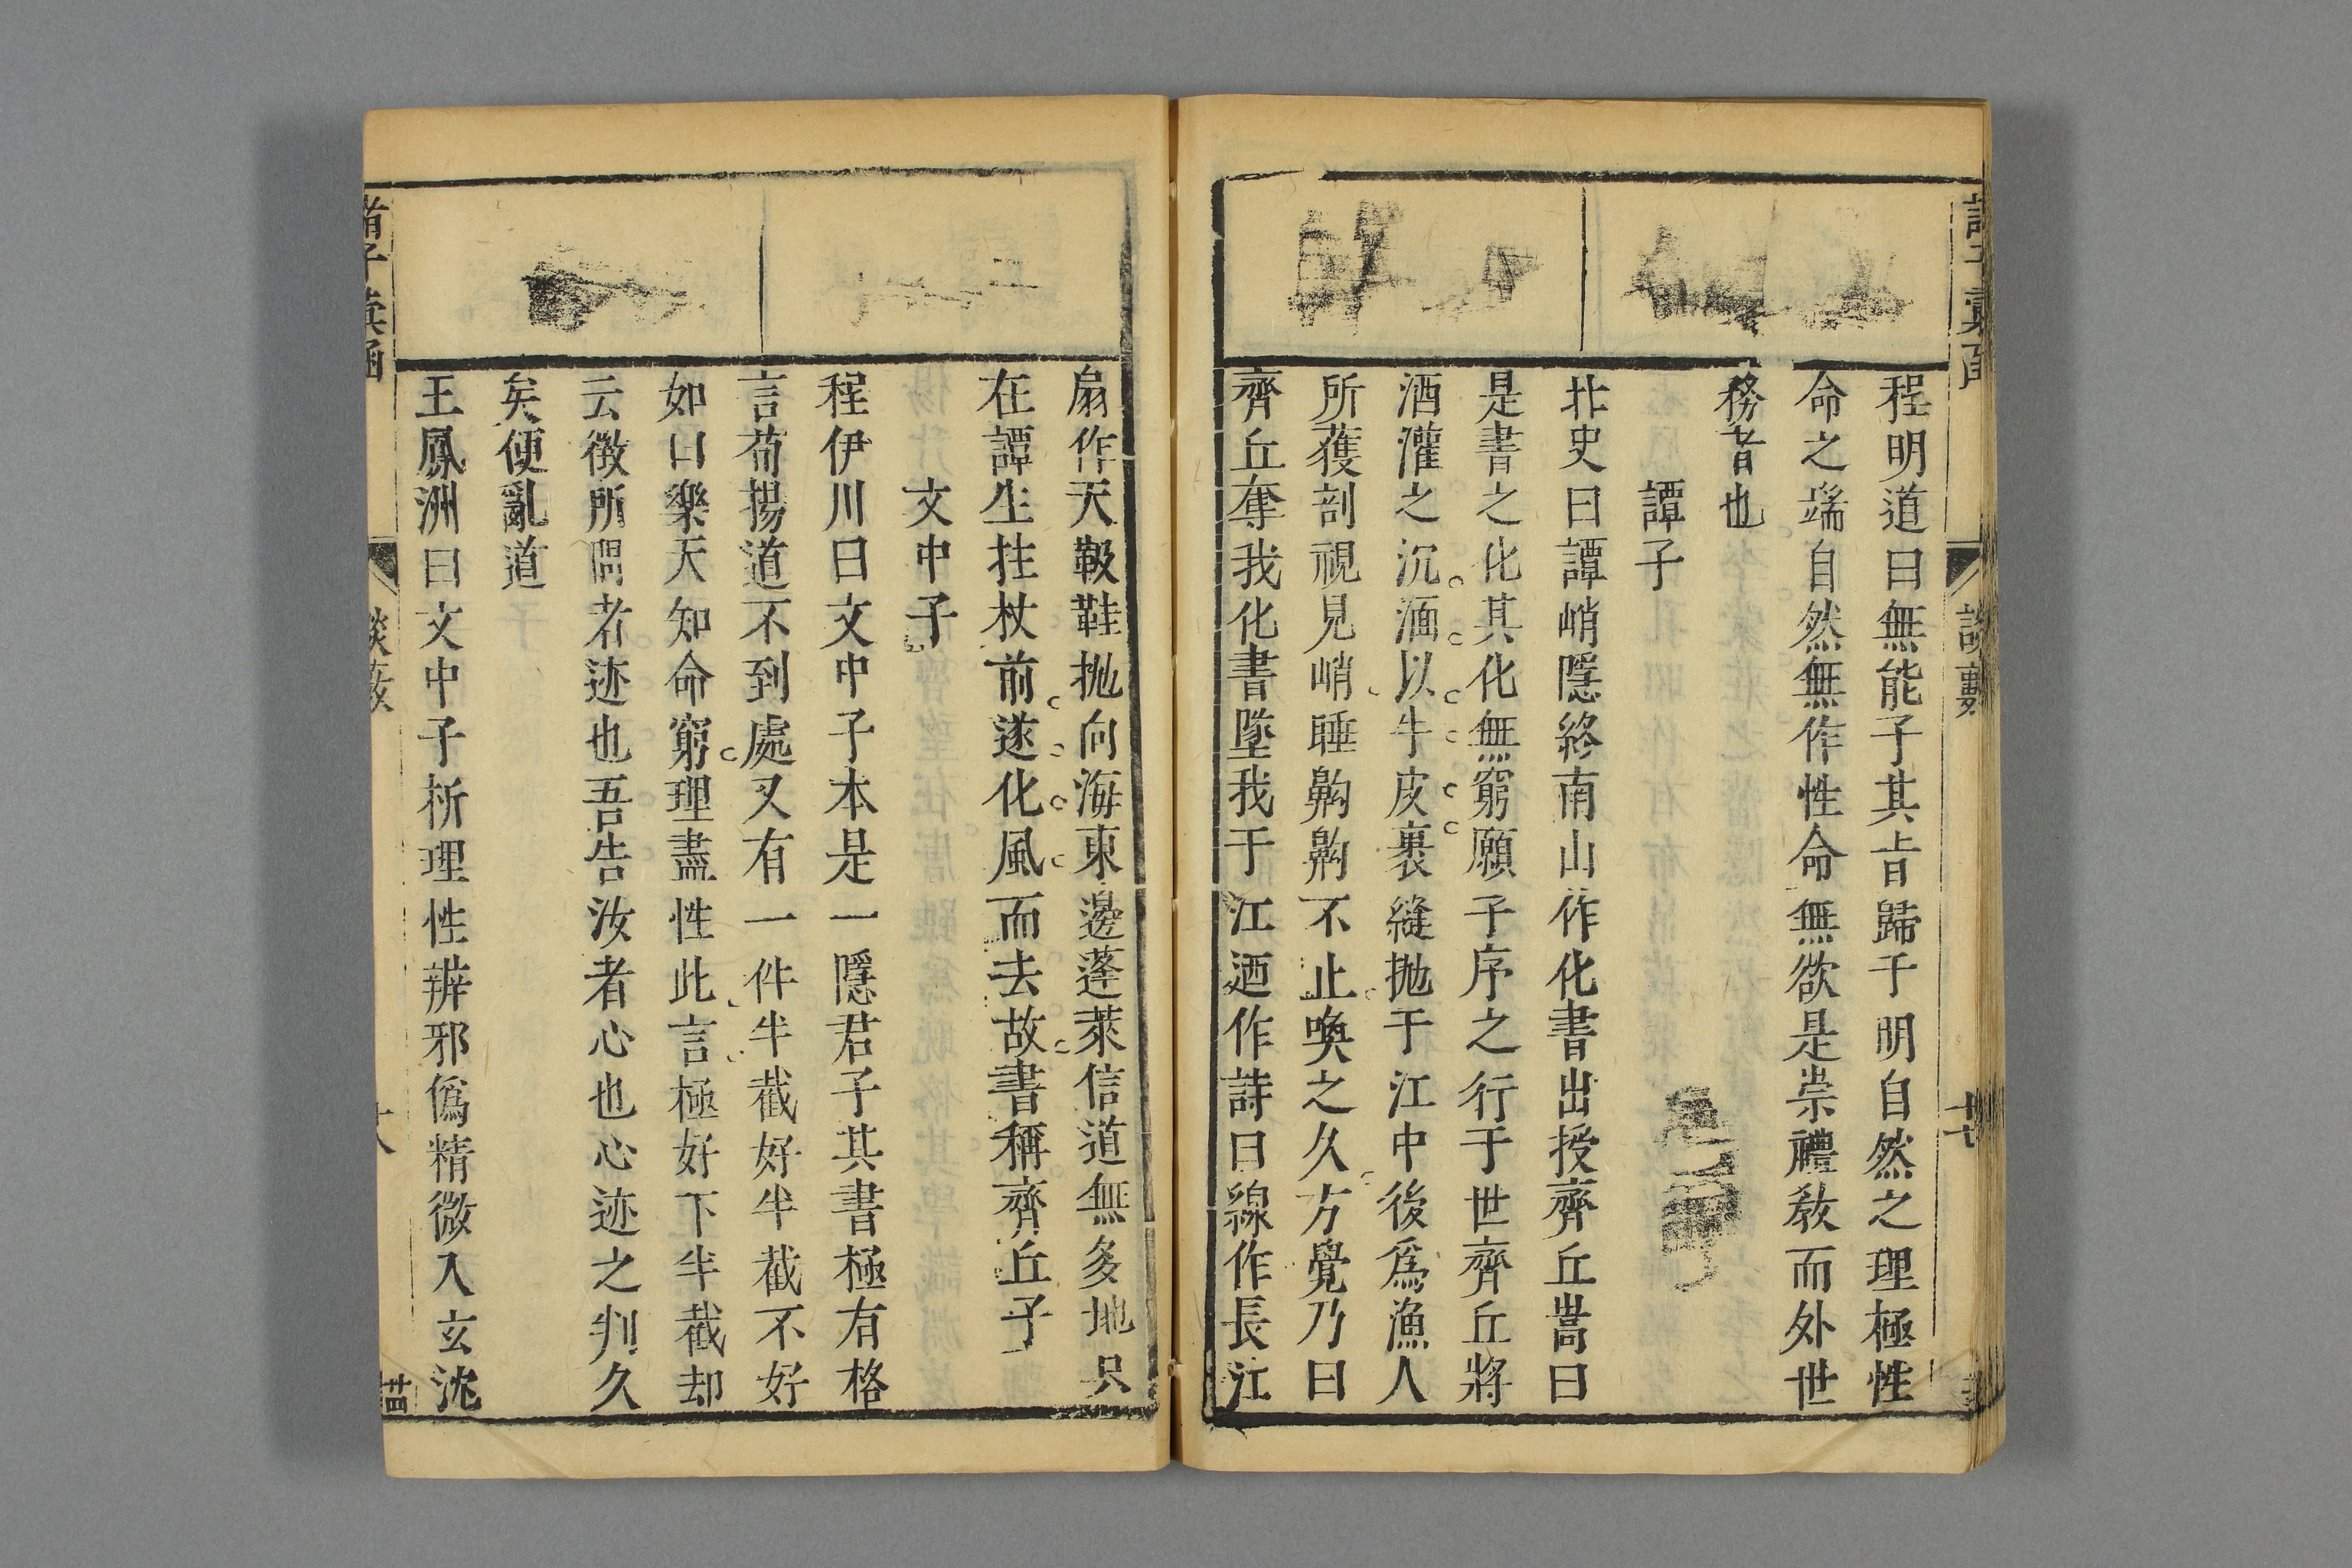 程明道曰無能子其旨歸于明自然之理極性
命之端自然無作性命無欲是崇禮教而外世
務者也
譚子
北史曰譚峭隱終南山作化書出授齊丘嵩曰
是書之化其化無窮願子序之行于世齊丘將
酒灌之沉湎以牛皮裹縫拋于江中後爲漁人
所獲剖視見峭睡齁齁不止喚之久方覺乃曰
齊丘奪我化書墜我于江迺作詩曰線作長江
扇作天靸鞋拋向海東邊蓬萊信道無多地只
在譚生拄杖前遂化風而去故書稱齊丘子
文中子
程伊川曰文中子本是一隱君子其書極有格
言荀揚道不到處又有一件半截好半截不好
如曰樂天知命窮理盡性此言極好下半截却
云徵所問者迹也吾告汝者心也心迹之判久
矣便亂道
王鳳洲曰文中子析理性辨邪僞精微入玄沈
談藪
十八